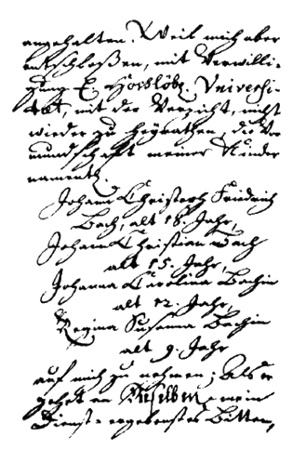 angehalten. Weil mich aber
entschloßen, mit Verwilli-
gung E. Hochlöbl. Universi-
tät, mit der Verzicht, nicht
wieder zu heyrathen, die Vor
mundschafft meiner Kinder
namentl.
Johann Christoph Friedrich
Bach, alt 18. Jahr,
Johann Christian Bach
alt 15. Jahr,
Johanna Carolina Bachin
alt 12. Jahr,
Regina Susanna Bachin
alt 9. Jahr
auf mich zu nehmen; Als er
gehet an Dieselben mein
Dienst-ergebenstes Bitten,